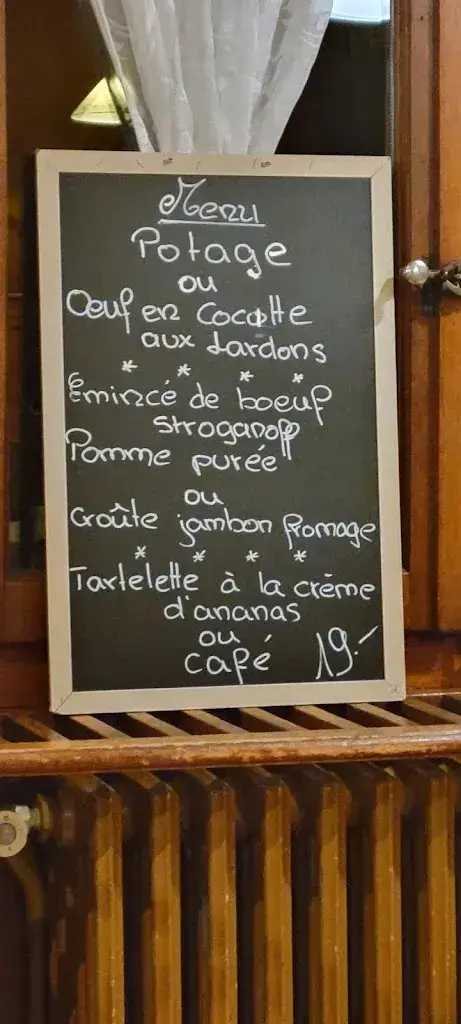 Menu
Potage
ou
Oeuf en Cocotte
aux Lardons
* * * *
Emincé de boeuf
stroganoff
Pomme purée
ou
Croûte jambon fromage
* * * *
Tartelette à la crème
d'ananas
ou
café 19.-